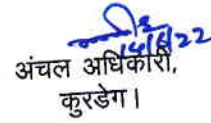 14/6/22
अंचल अधिकारी,
कुरडेग।